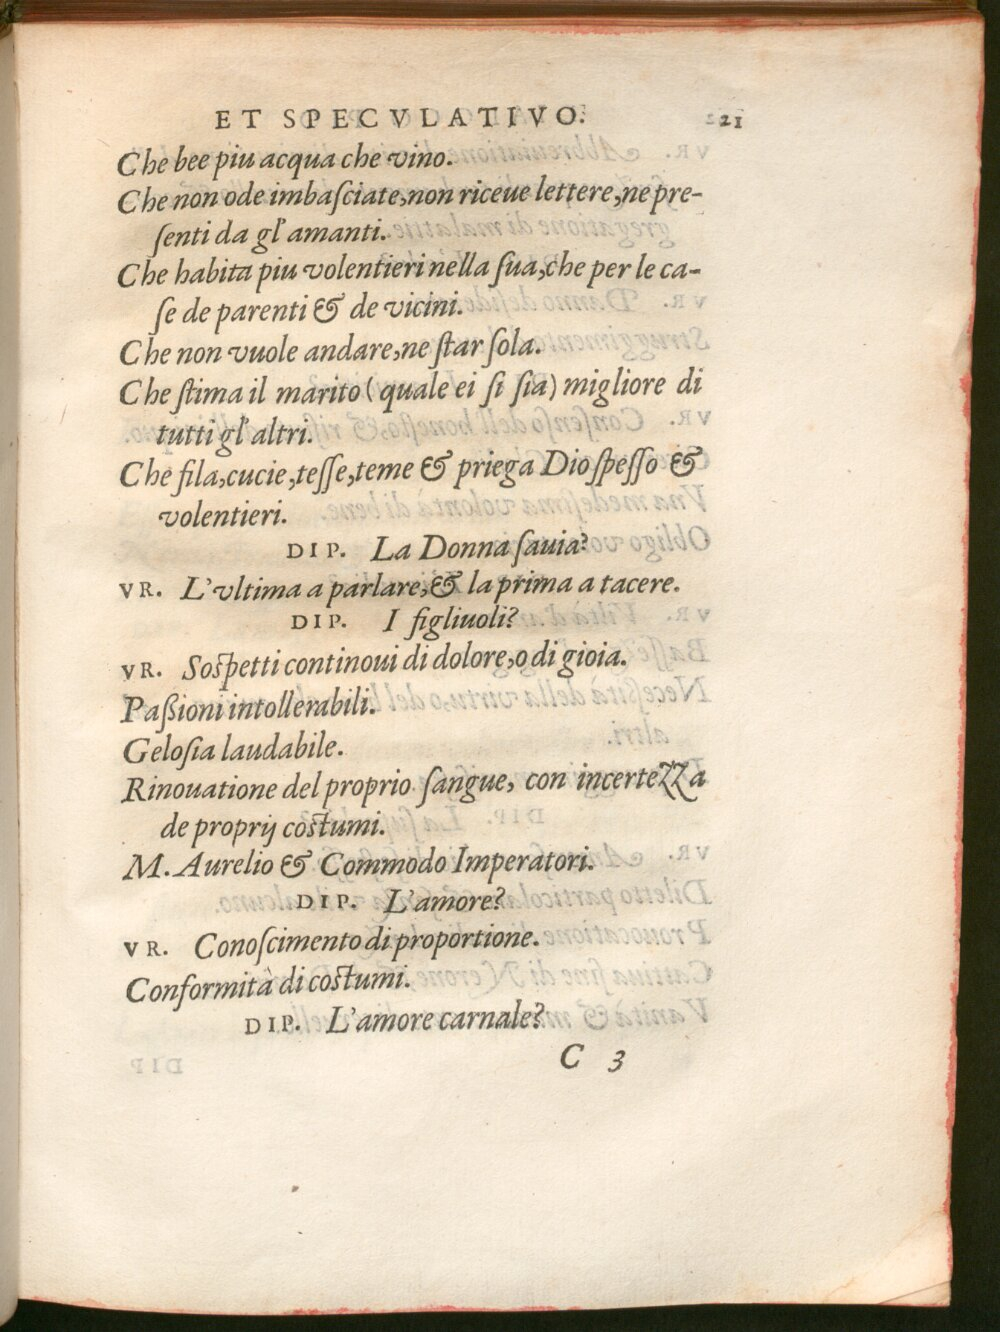 ET SPECVLATIVO. 21
Che bee piu acqua che vino.
Che non ode imbaſciate, non riceue lettere, ne pre-
ſenti da gl' amanti.
Che habita piu volentieri nella ſua, che per le ca-
ſe de parenti & de vicini.
Che non vuole andare, ne ſtar ſola.
Che ſtima il marito (quale ei ſi ſia) migliore di
tutti gl' altri.
Che fila, cucie, teſſe, teme & priega Dio ſpeſſo &
volentieri.
DIP. La Donna ſauia?
VR. L'vltima a parlare, & la prima a tacere.
DIP. I figliuoli?
VR. Soſpetti continoui di dolore, o di gioia.
Paßioni intollerabili.
Geloſia laudabile.
Rinouatione del proprio ſangue, con incertezza
de proprij coſtumi.
M. Aurelio & Commodo Imperatori.
DIP. L'amore?
VR. Conoſcimento di proportione.
Conformità di coſtumi.
DIP. L'amore carnale?
C 3